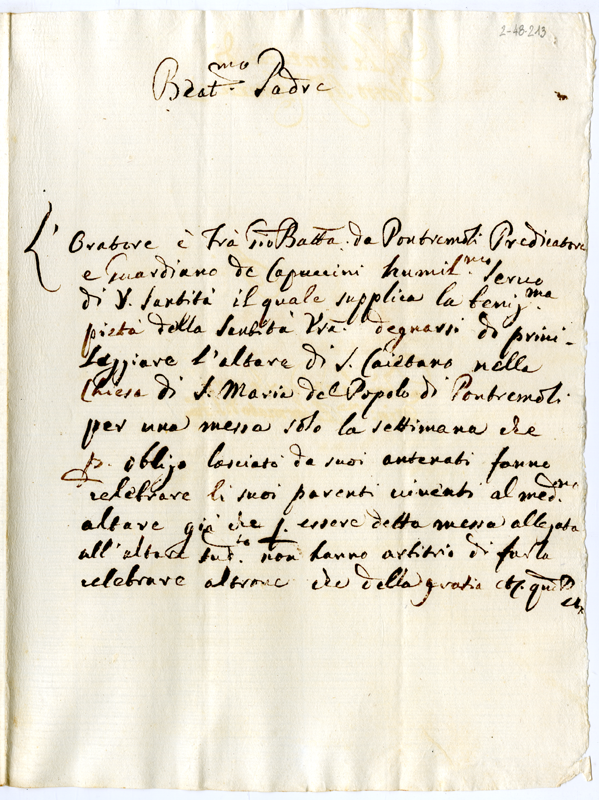 2-48-213
Beat.mo Padre
L'Oratore è frà Gio Batta. da Pontremoli Predicatore
e Guardiano de Capuccini humil.mo Servo
di V. Santità il quale supplica la benig.ma
pietà della Santità Vra. degnarsi di privi-
leggiare l'altare di S. Caietano nella
Chiesa di S. Maria del Popolo di Pontremoli
per una messa solo la settimana che
p. obligo lasciato da suoi antenati fanno
celebrare li suoi parenti viventi al med.mo
altare già che p. essere detta messa allegata
all'altare sud.to non hanno arbitrio di farla
celebrare altrove che della gratia etz. quã D
etz.